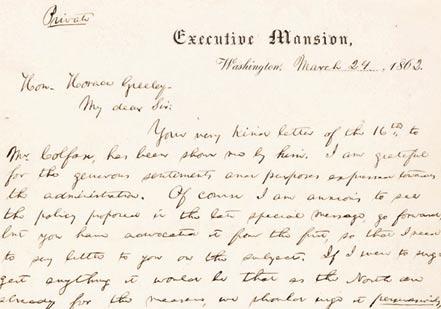 Private
Executive Mansion,
Washington, March 24, 1862.
Hon. Horace Greeley-
My dear Sir:
Your very kind letter of the 16th to
Mr. Colfax, has been shown me by him. I am grateful
for the generous sentiments and purposes expressed towards
the administration. Of course I am anxious to see
the policy proposed in the late special message, go forward,
but you have advocated it from the first, so that I need
to say little to you on the subject. If I were to sug-
gest anything it would be that as the North are
already for the measure, we should urge it persuasively,